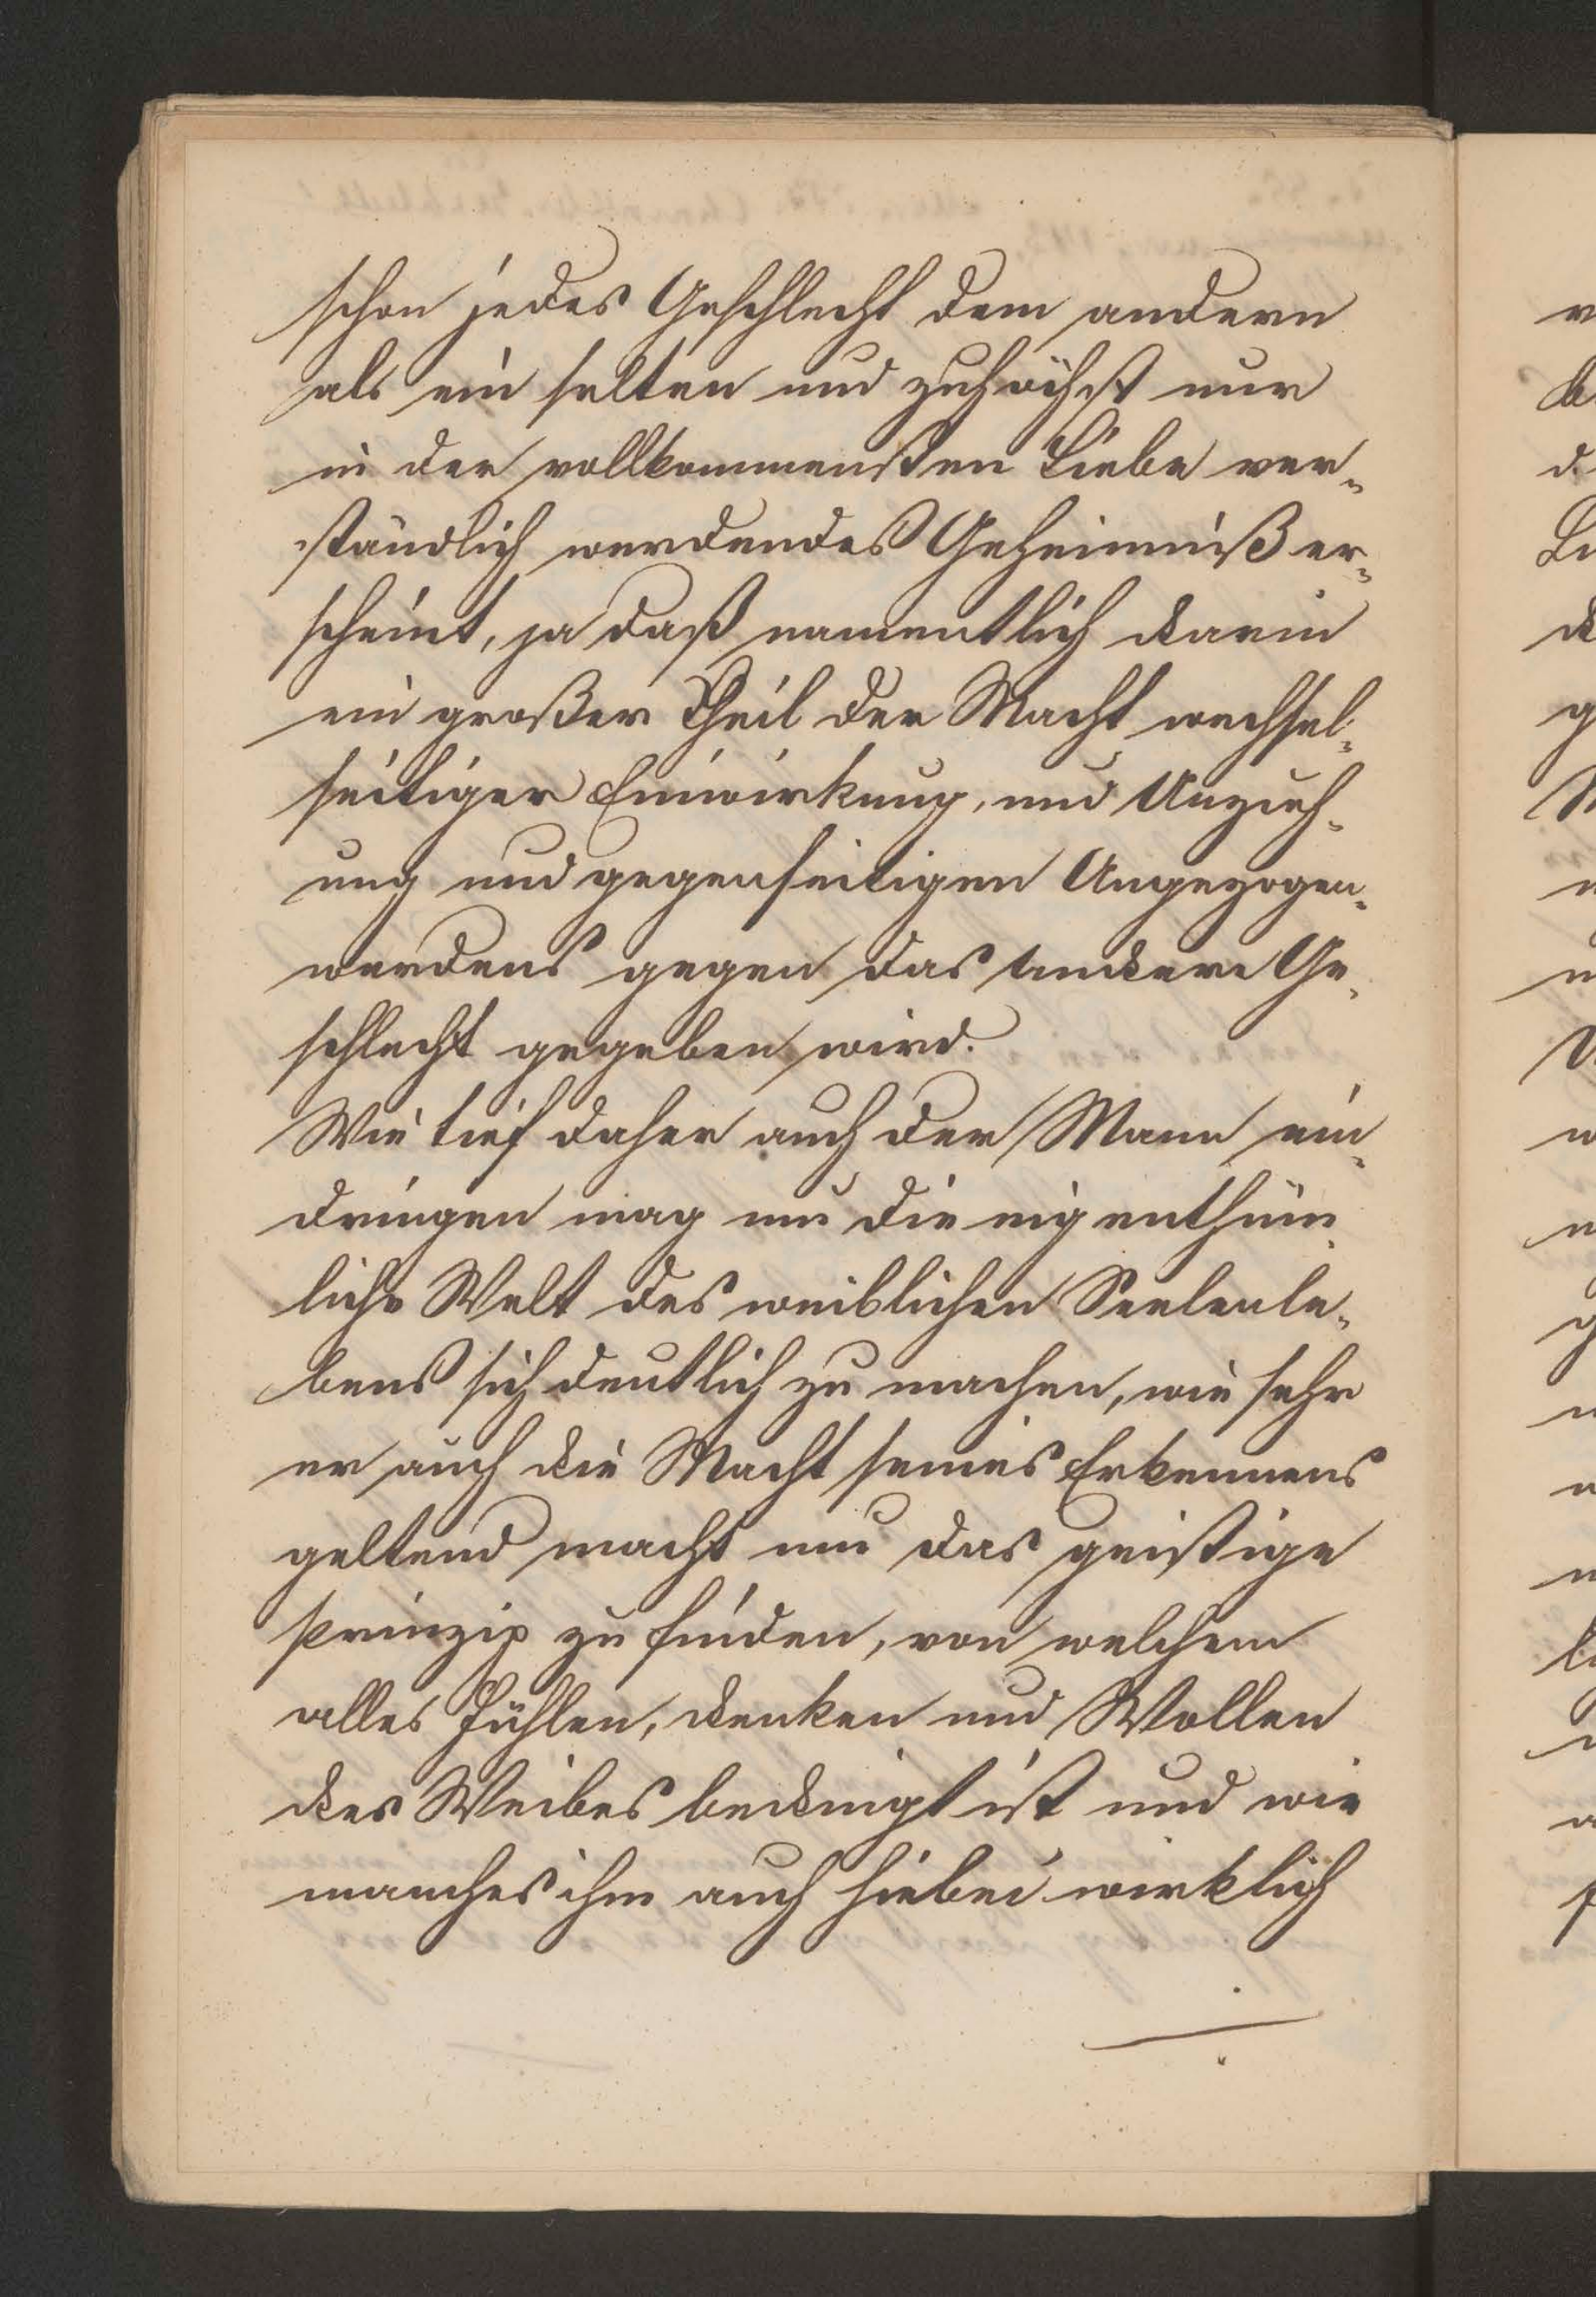 schon jedes Geschlecht dem andern
als ein selten und zuhöchst nur
in der vollkommensten Liebe ver-
ständlich werdendes Geheimniß er-
scheint, ja daß namentlich darin
ein großer Theil der Macht wechsel-
seitiger Einwirkung, und Anzieh-
ung und gegenseitigen Angezogen-
werdens gegen das andere Ge-
schlecht gegeben wird.
Wie tief daher auch der Mann ein-
dringen mag um die eigenthüm-
liche Welt des weiblichen Seelenle-
bens sich deutlich zu machen, wie sehr
er auch die Macht seines Erkennens
geltend macht um das geistige
Prinzip zu finden, von welchem
alles Fühlen, Denken und Wollen
des Weibes bedingt ist und wie
manches ihm auch hiebei wirklich